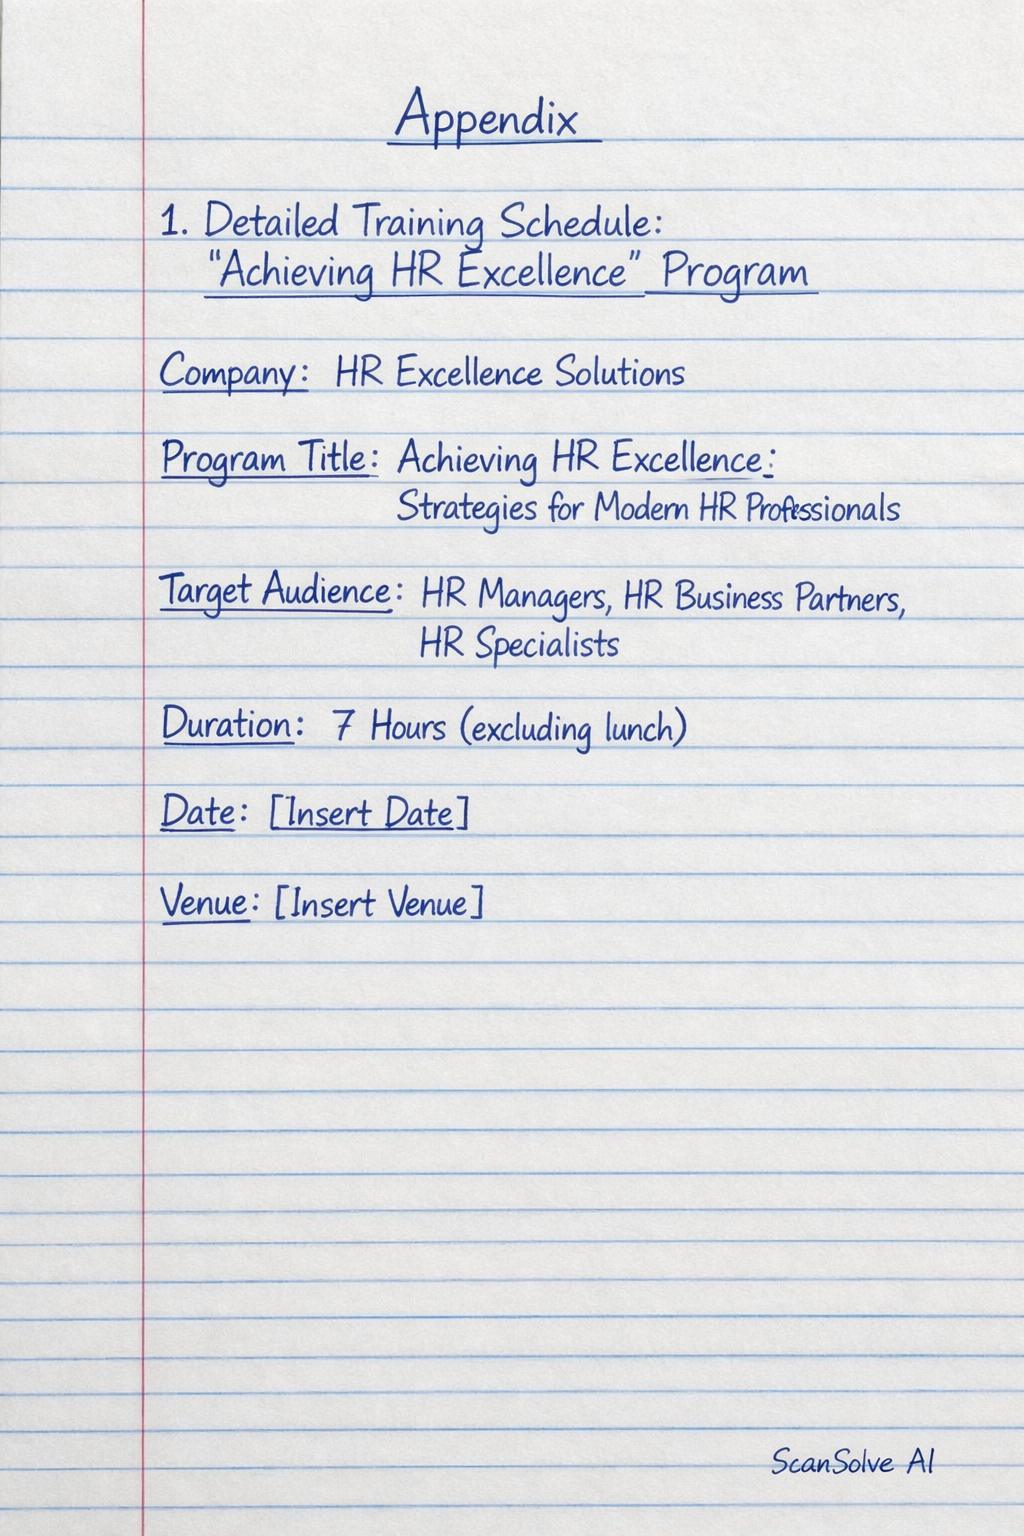 Appendix
1. Detailed Training Schedule:
"Achieving HR Excellence" Program
Company: HR Excellence Solutions
Program Title: Achieving HR Excellence:
Strategies for Modern HR Professionals
Target Audience: HR Managers, HR Business Partners,
HR Specialists
Duration: 7 Hours (excluding lunch)
Date: [Insert Date]
Venue: [Insert Venue]
ScanSolve AI